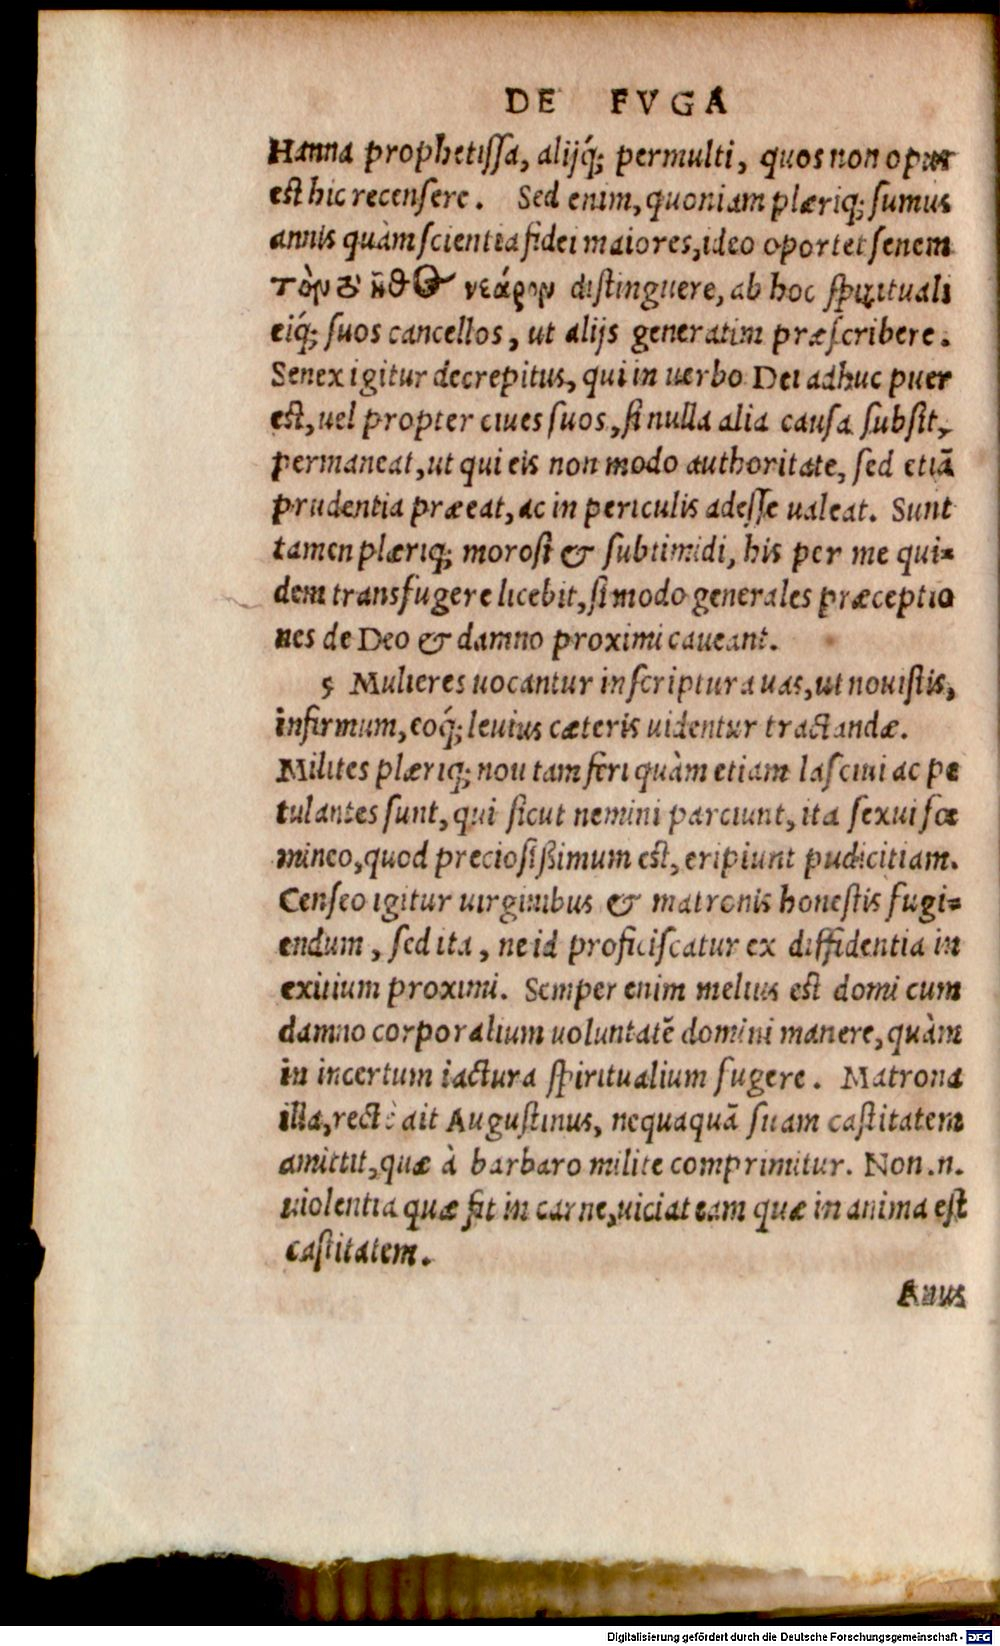 DE FVGA
Hanna prophetissa, alijq́; permulti, quos non opus
est hic recensere. Sed enim, quoniam plæriq; sumus
annis quàm scientia fidei maiores, ideo oportet senem
νεάρον distinguere, ab hoc spirituali
eiq́; suos cancellos, ut alijs generatim præscribere.
Senex igitur decrepitus, qui in uerbo Dei adhuc puer
est, uel propter ciues suos, si nulla alia causa subsit,
permaneat, ut qui eis non modo authoritate, sed etiā
prudentia præeat, ac in periculis adesse ualeat. Sunt
tamen plæriq; morosi & subtimidi, his per me qui-
dem transfugere licebit, si modo generales præceptio
nes de Deo & damno proximi caueant.
5 Mulieres uocantur in scriptura uas, ut nouistis,
infirmum, eoq́; leuius cæteris uidentur tractandæ.
Milites plæriq; non tam feri quàm etiam lasciui ac pe
tulantes sunt, qui sicut nemini parciunt, ita sexui fœ
mineo, quod preciosißimum est, eripiunt pudicitiam.
Censeo igitur uirginibus & matronis honestis fugi-
endum, sed ita, ne id proficiscatur ex diffidentia in
exitium proximi. Semper enim melius est domi cum
damno corporalium uoluntatē domini manere, quàm
in incertum iactura spiritualium fugere. Matrona
illa, rectè ait Augustinus, nequaquā suam castitatem
amittit, quæ à barbaro milite comprimitur. Non.n.
uiolentia quæ fit in carne, uiciat eam quæ in anima est
castitatem.
Anus
Digitalisierung gefördert durch die Deutsche Forschungsgemeinschaft - DFG